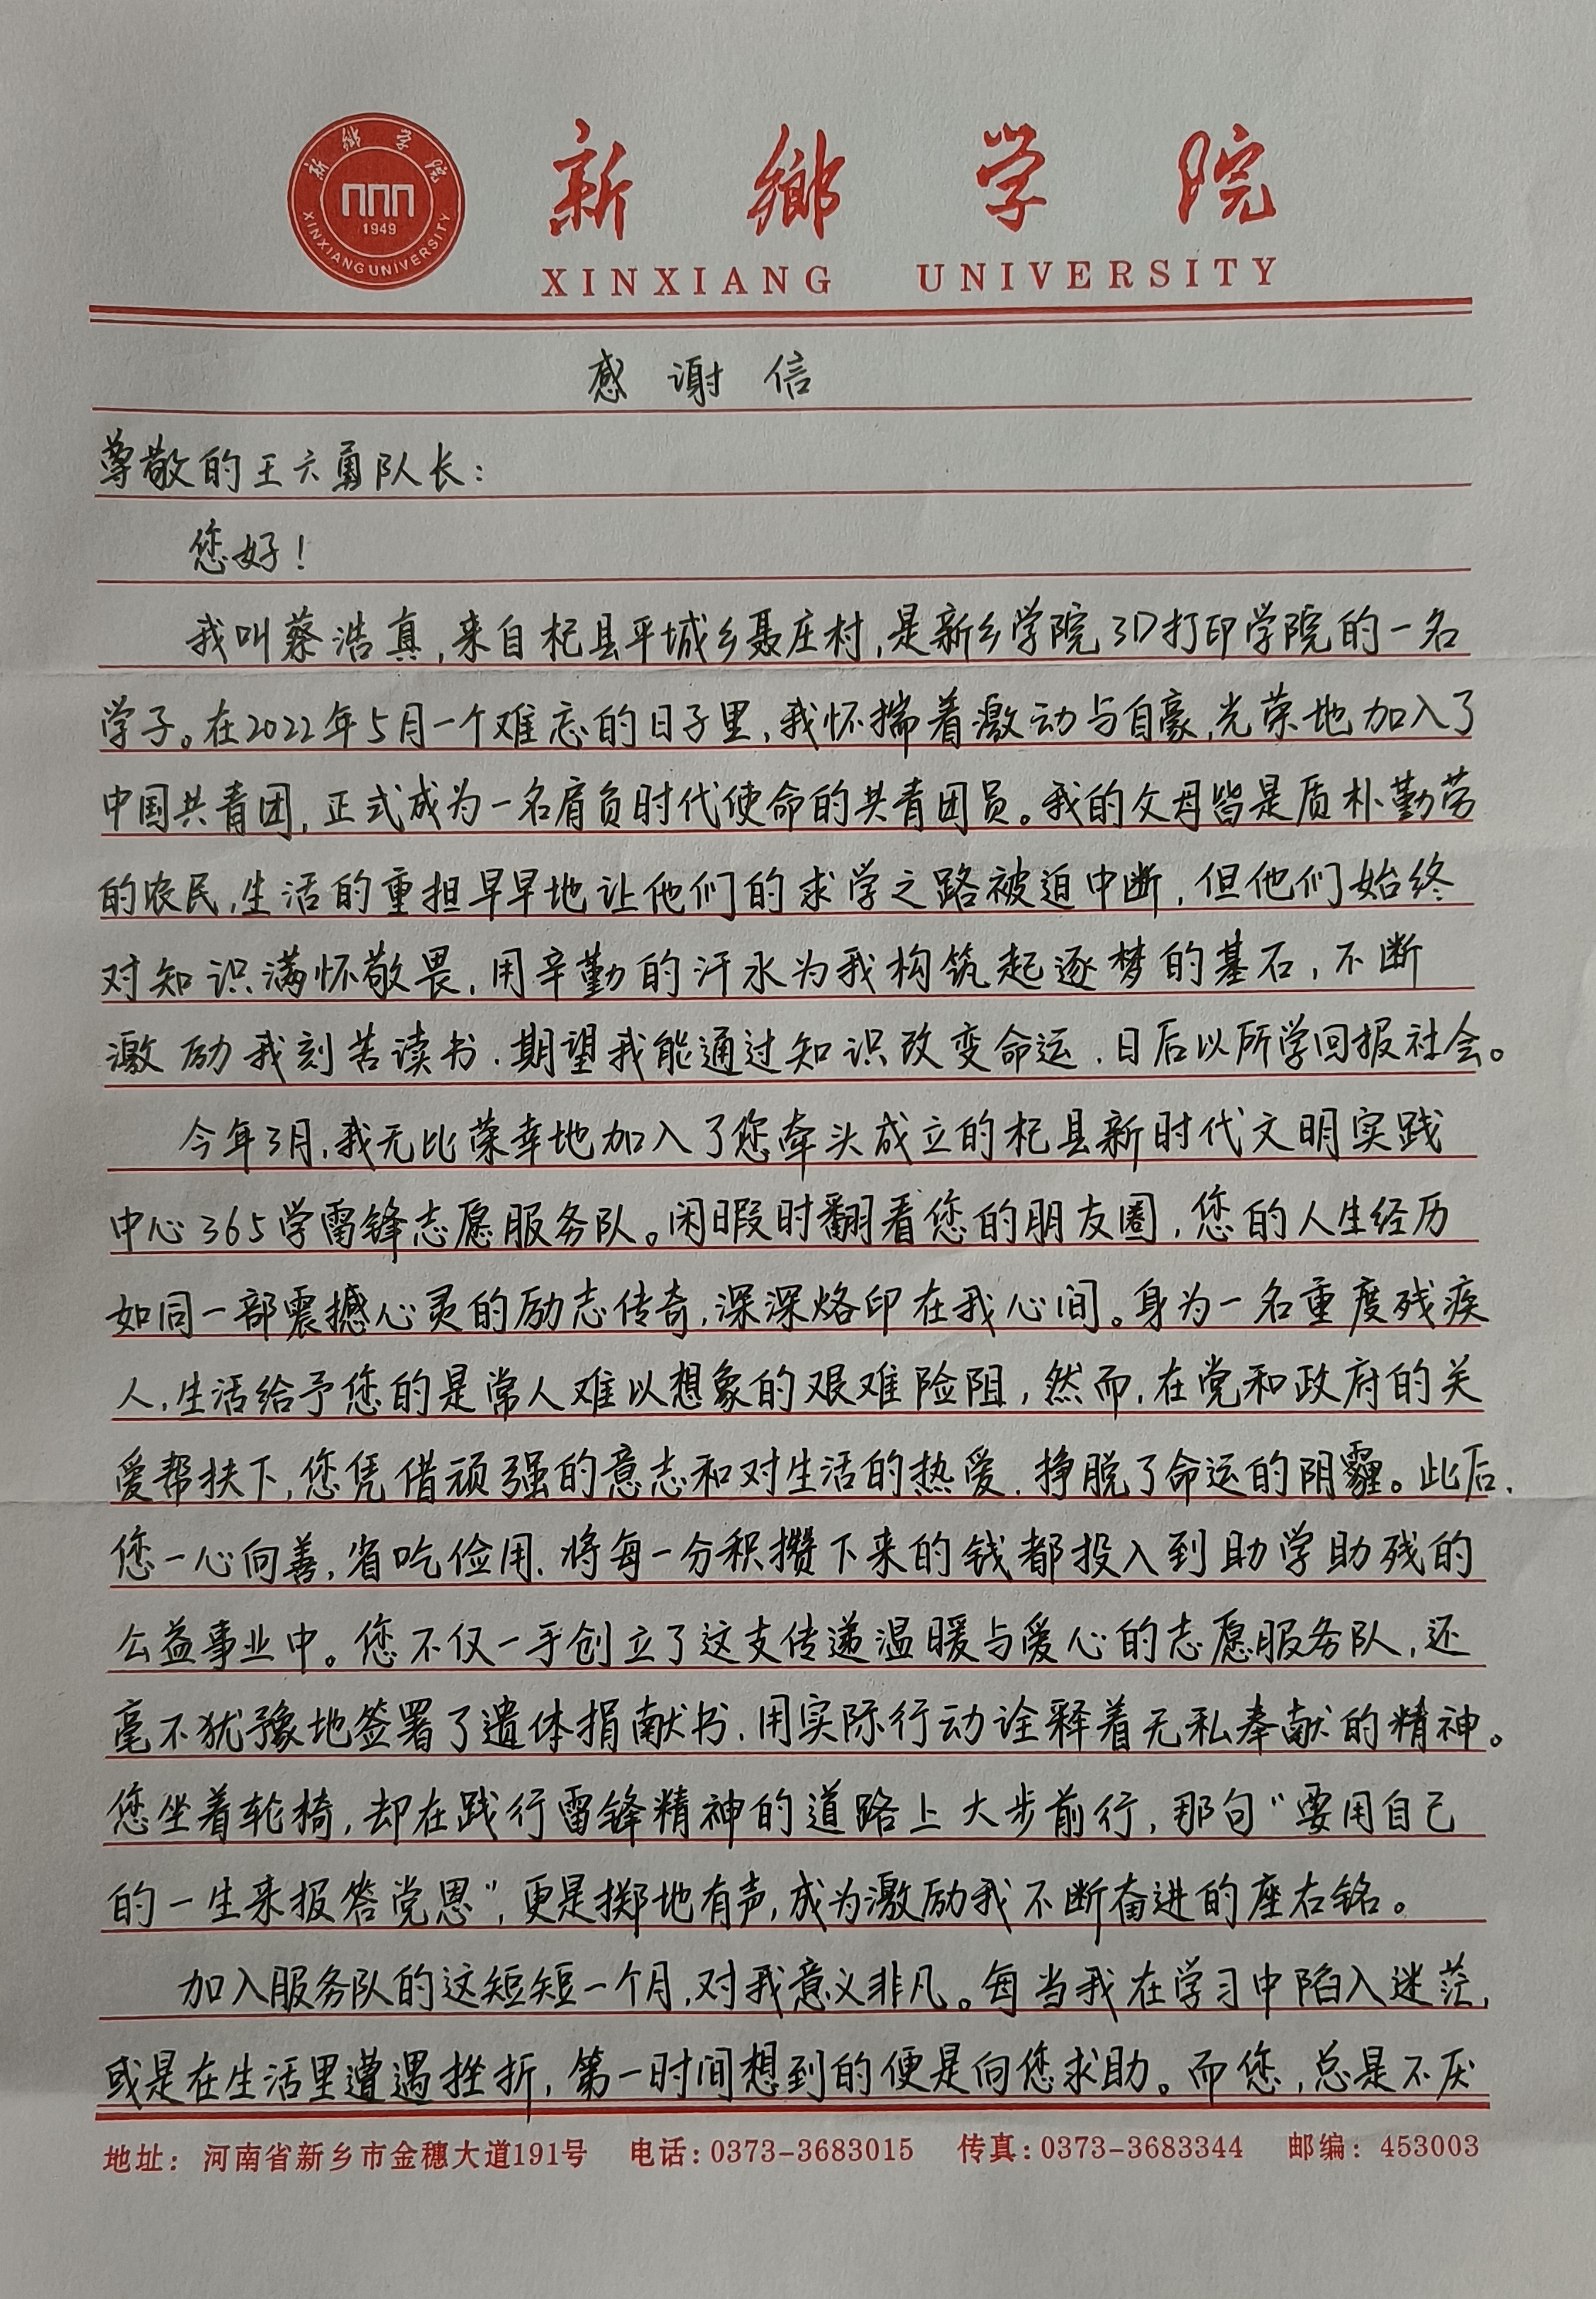 新鄉学院
XINXIANG UNIVERSITY
1949
新鄉学院
XINXIANG UNIVERSITY
感谢信
尊敬的王六勇队长：
您好！
我叫蔡浩真，来自杞县平城乡聂庄村，是新乡学院3D打印学院的一名
学子。在2022年5月一个难忘的日子里，我怀揣着激动与自豪，光荣地加入了
中国共青团，正式成为一名肩负时代使命的共青团员。我的父母皆是质朴勤劳
的农民，生活的重担早早地让他们的求学之路被迫中断，但他们始终
对知识满怀敬畏，用辛勤的汗水为我构筑起逐梦的基石，不断
激励我刻苦读书，期望我能通过知识改变命运，日后以所学回报社会。
今年3月，我无比荣幸地加入了您牵头成立的杞县新时代文明实践
中心365学雷锋志愿服务队。闲暇时翻看您的朋友圈，您的人生经历
如同一部震撼心灵的励志传奇，深深烙印在我心间。身为一名重度残疾
人，生活给予您的是常人难以想象的艰难险阻，然而，在党和政府的关
爱帮扶下，您凭借顽强的意志和对生活的热爱，挣脱了命运的阴霾。此后，
您一心向善，省吃俭用，将每一分积攒下来的钱都投入到助学助残的
公益事业中。您不仅一手创立了这支传递温暖与爱心的志愿服务队，还
毫不犹豫地签署了遗体捐献书，用实际行动诠释着无私奉献的精神。
您坐着轮椅，却在践行雷锋精神的道路上大步前行，那句“要用自己
的一生来报答党恩”，更是掷地有声，成为激励我不断奋进的座右铭。
加入服务队的这短短一个月，对我意义非凡。每当我在学习中陷入迷茫，
或是在生活里遭遇挫折，第一时间想到的便是向您求助。而您，总是不厌
地址：河南省新乡市金穗大道191号 电话：0373-3683015 传真：0373-3683344 邮编：453003